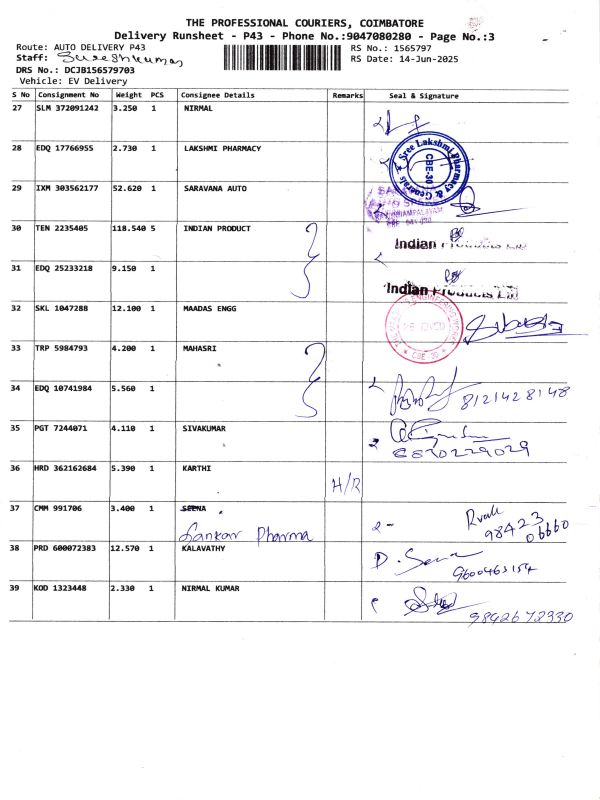 THE PROFESSIONAL COURIERS, COIMBATORE
Delivery Runsheet - P43 - Phone No.:9047080280 - Page No.:3
Route: AUTO DELIVERY P43 RS No.: 1565797
Staff: Sureshkumar RS Date: 14-Jun-2025
DRS No.: DCJB156579703
Vehicle: EV Delivery
S No Consignment No Weight PCS Consignee Details Remarks Seal & Signature
27 SLM 372091242 3.250 1 NIRMAL
28 EDQ 17766955 2.730 1 LAKSHMI PHARMACY
Sree Lakshmi Pharmacy & Generals CBE-30
29 IXM 303562177 52.620 1 SARAVANA AUTO
30 TEN 2235405 118.540 5 INDIAN PRODUCT
Indian Products Ltd
31 EDQ 25233218 9.150 1
Indian Products Ltd
32 SKL 1047288 12.100 1 MAADAS ENGG
CBE 30
33 TRP 5984793 4.200 1 MAHASRI
34 EDQ 10741984 5.560 1
8121428148
35 PGT 7244071 4.110 1 SIVAKUMAR
36 HRD 362162684 5.390 1 KARTHI H/R
37 CMM 991706 3.400 1 SEENA
Sankar Pharma
98423
06660
38 PRD 600072383 12.570 1 KALAVATHY
9600463154
39 KOD 1323448 2.330 1 NIRMAL KUMAR
9842672330